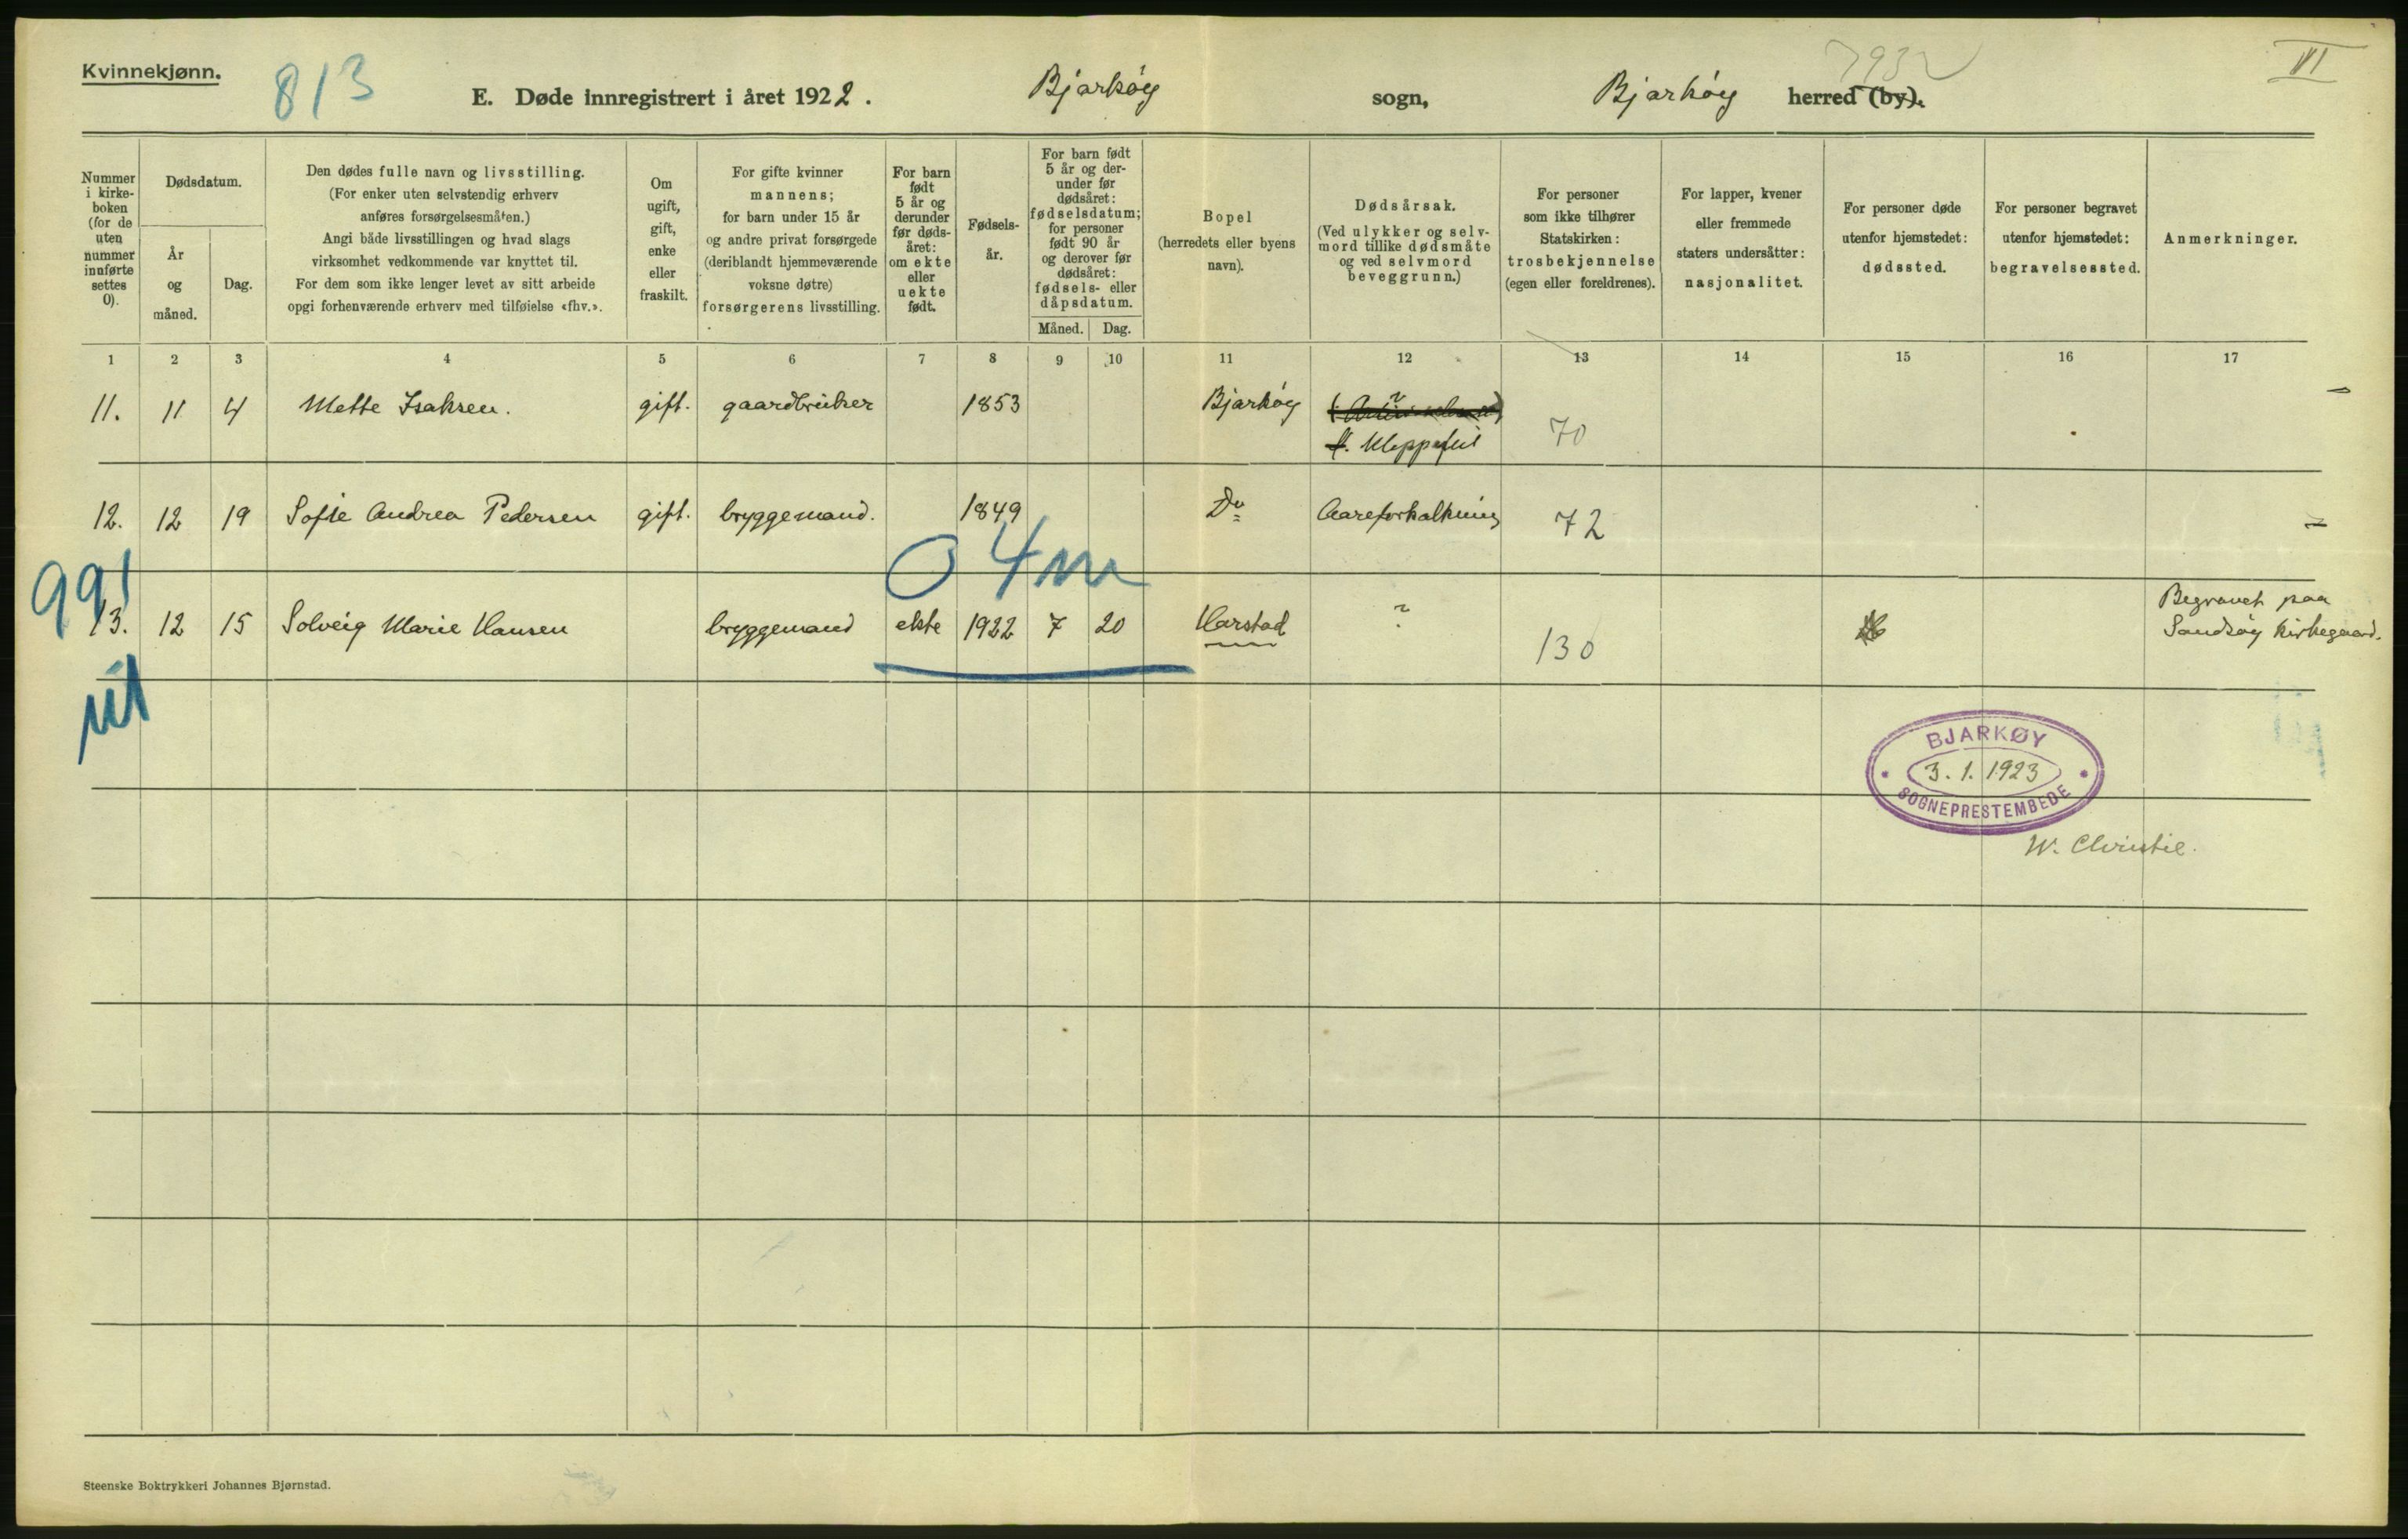 Kvinnekjønn.
813
E. Døde innregistrert i året 1922.
Bjarkøy sogn,
Bjarkøy herred (by).
7932
VI
Nummer i kirke-boken (for de uten nummer innførte settes 0).
Dødsdatum.
År og måned.
Dag.
Den dødes fulle navn og livsstilling.
(For enker uten selvstendig erhverv
anføres forsørgelsesmåten.)
Angi både livsstillingen og hvad slags
virksomhet vedkommende var knyttet til.
For dem som ikke lenger levet av sitt arbeide
opgi forhenværende erhverv med tilføielse «fhv.».
Om
ugift,
gift,
enke
eller
fraskilt.
For gifte kvinner
mannens;
for barn under 15 år
og andre privat forsørgede
(deriblandt hjemmeværende
voksne døtre)
forsørgerens livsstilling.
For barn
født
5 år og
derunder
før døds-
året:
om ekte
eller
uekte
født.
Fødsels-
år.
For barn født
5 år og der-
under før
dødsåret:
fødselsdatum;
for personer
født 90 år
og derover før
dødsåret:
fødsels- eller
dåpsdatum.
Måned. Dag.
Bopel
(herredets eller byens
navn).
Dødsårsak.
(Ved ulykker og selv-
mord tillike dødsmåte
og ved selvmord
beveggrunn.)
For personer
som ikke tilhører
Statskirken:
trosbekjennelse
(egen eller foreldrenes).
For lapper, kvener
eller fremmede
staters undersåtter:
nasjonalitet.
For personer døde
utenfor hjemstedet:
dødssted.
For personer begravet
utenfor hjemstedet:
begravelsessted.
Anmerkninger.
1 2 3 4 5 6 7 8 9 10 11 12 13 14 15 16 17
11. 11 4 Mette Isaksen. gift. gaardbruker 1853 Bjarkøy ?
Kleppsfeil 70
12. 12 19 Sofie Andrea Pedersen gift. bryggemand. 1849 Do Aareforkalkning 72
0 4m
991
13. 12 15 Solveig Marie Hansen bryggemand ekte 1922 7 20 Harstad ? 130 Begravet paa
Sandsøy kirkegaard.
ut
BJARKØY
3. 1. 1923
SOGNEPRESTEMBEDE
W. Christie.
Steenske Boktrykkeri Johannes Bjørnstad.